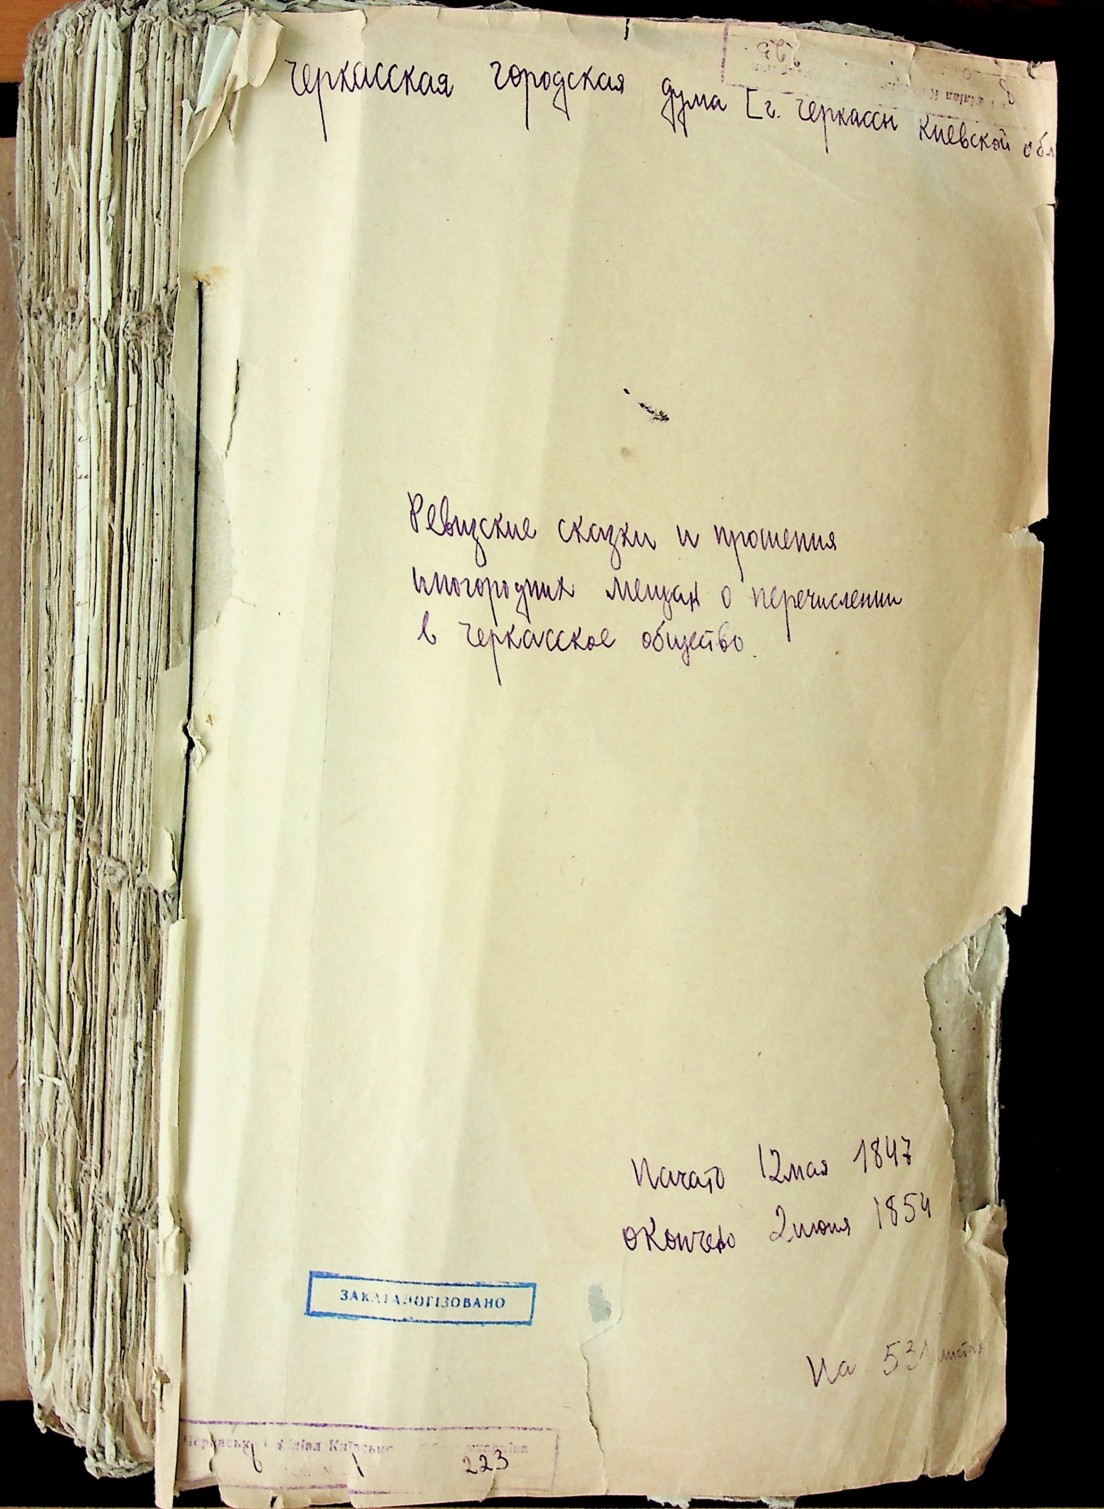 Черкасская городская дума [г. Черкассы Киевской обл
Ревизские сказки и прошения
иногородних мещан о перечислении
в Черкасское общество.
Начато 12 мая 1847
Окончено 2 июня 1854
ЗАКАТАЛОГІЗОВАНО
На 531 листах
філіал Київсько
6 1 223